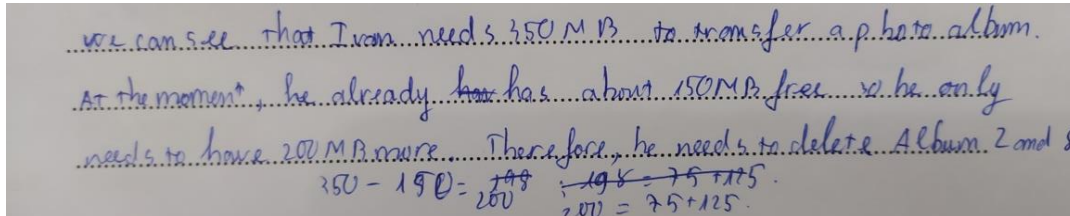 we can see that Ivan needs 350 MB to transfer a photo album.
At the moment, he already has about 150MB free so he only
needs to have 200MB more. Therefore, he needs to delete Album 2 and
350 - 150 = 200 200 = 75 + 125.